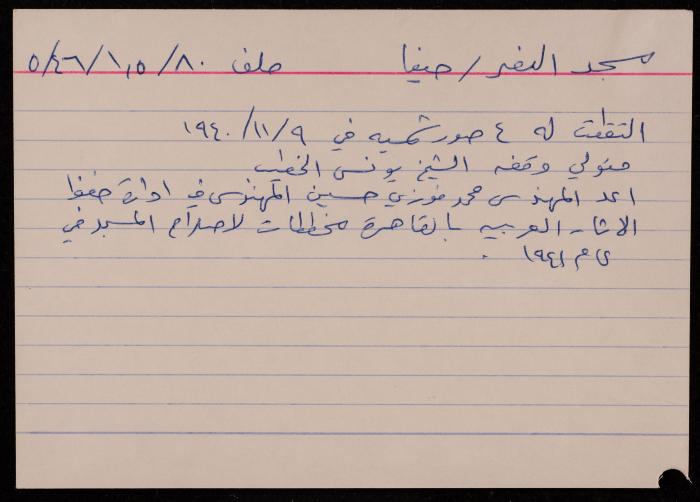 مسجد النصر / حيفا ملف ٥/٤٦/١,٥/٨٠
التقطت له ٤ صور شمسيه في ٩ /١١/ ١٩٤٠
متولي وقفه الشيخ يونس الخطيب
اعد المهندس محمد فوزي حسين المهندس في ادارة حفظ
الاثار العربيه بالقاهرة مخططات لاصلاح المسجد في
عام ١٩٤١ .